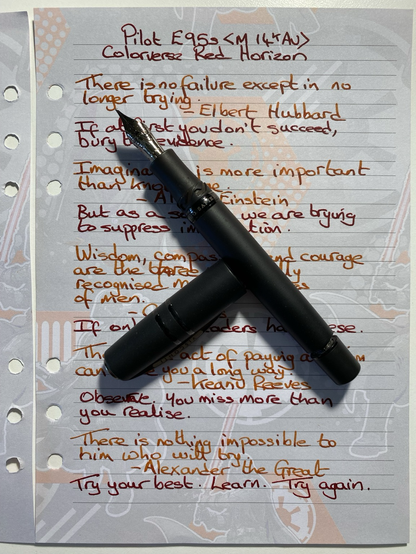 Pilot E95s <M 14k Au>
Colorverse Red Horizon
There is no failure except in no
longer trying.
- Elbert Hubbard
If at first you don't succeed,
bury evidence.
is more important
than
- Einstein
But as a we are trying
to suppress
Wisdom, and courage
are the
recognised
of men.
If
The act of paying
can you a long way
- Keanu Reeves
Observe. You miss more than
you realise.
There is nothing impossible to
him who will try.
- Alexander the Great
Try your best. Learn. Try again.